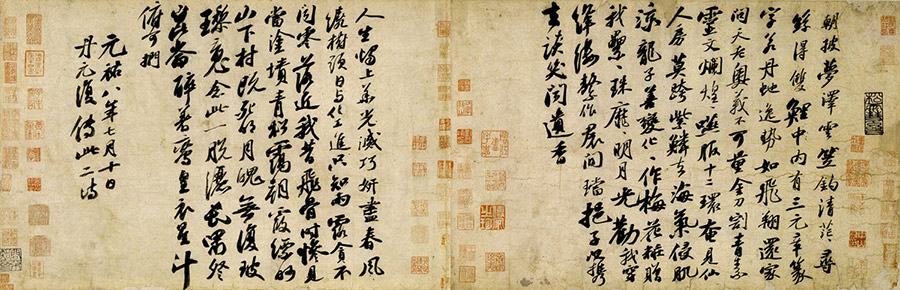 朝披夢澤雲笠釣清茫茫尋
絲得雙鯉中内有三元章篆
字若丹虵逸勢如飛翔還家
問天老奧義不可量金刀割青素
靈文爛煌煌嚥服十二環奄見仙
人房莫跨紫鱗去海氣侵肌
涼龍子善變化化作梅花粧贈
我纍纍珠靡靡明月光勸我穿
絳縷繫作裙間璫挹子以攜
去談笑聞遺香
人生燭上華光滅巧妍盡春風
繞樹頭日與化工進只知雨露貪不
聞零落近我昔飛骨時慘見
當塗墳青松靄朝霞縹緲
山下村既死明月魄無復玻
瓈魂念此一脫灑長嘯祭
崑崙醉著鸞皇衣星斗
俯可捫
元祐八年七月十日
丹元復傳此二詩